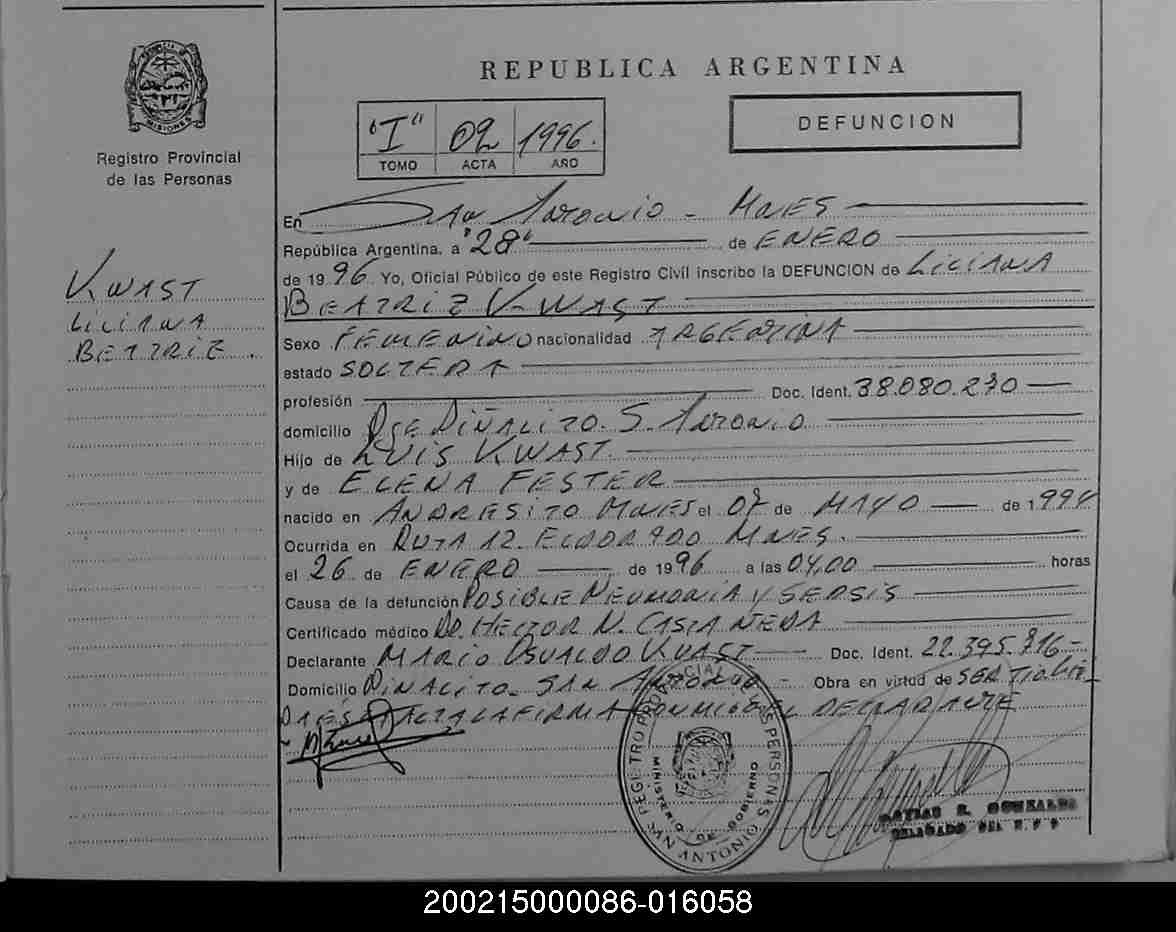 REPUBLICA ARGENTINA
MISIONES
Registro Provincial
de las Personas
"I" 02 1996.
TOMO ACTA AÑO
DEFUNCION
KWAST
LILIANA
BEATRIZ.
En San Antonio - MNES
República Argentina, a "28" de ENERO
de 1996. Yo, Oficial Público de este Registro Civil inscribo la DEFUNCION de LILIANA
BEATRIZ KWAST
Sexo FEMENINO nacionalidad ARGENTINA
estado SOLTERA
profesión Doc. Ident. 38.080.270
domicilio PIÑALITO. S. ANTONIO
Hijo de LUIS KWAST.
y de ELENA FESTER
nacido en ANDRESITO MNES el 07 de MAYO de 1994
Ocurrida en RUTA 12. ELDORADO MNES.
el 26 de ENERO de 1996 a las 04,00 horas
Causa de la defunción POSIBLE NEUMONIA Y SEPSIS
Certificado médico DR. HECTOR N. CASTAÑEDA
Declarante MARIO OSVALDO KWAST Doc. Ident. 22.395.716-
Domicilio PIÑALITO- SAN ANTONIO - Obra en virtud de SER TIO
ACTA LA FIRMA CONMIGO EL DECLARANTE
REGISTRO PROVINCIAL DE LAS PERSONAS
MINISTERIO DE GOBIERNO
SAN ANTONIO
E. GONZALEZ
DELEGADO DEL R. P. P.
200215000086-016058